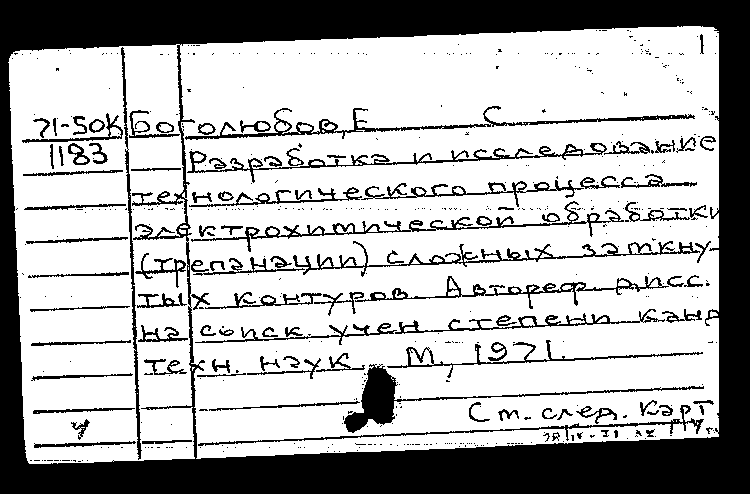 1
71-50К Боголюбов, Е С.
1183 Разработка и исследование
технологического процесса
электрохимической обработки
(трепанации) сложных замкну-
тых контуров. Автореф. дисс.
на соиск. учен степени канд
техн. наук. М., 1971.
См. след. карт.
ч